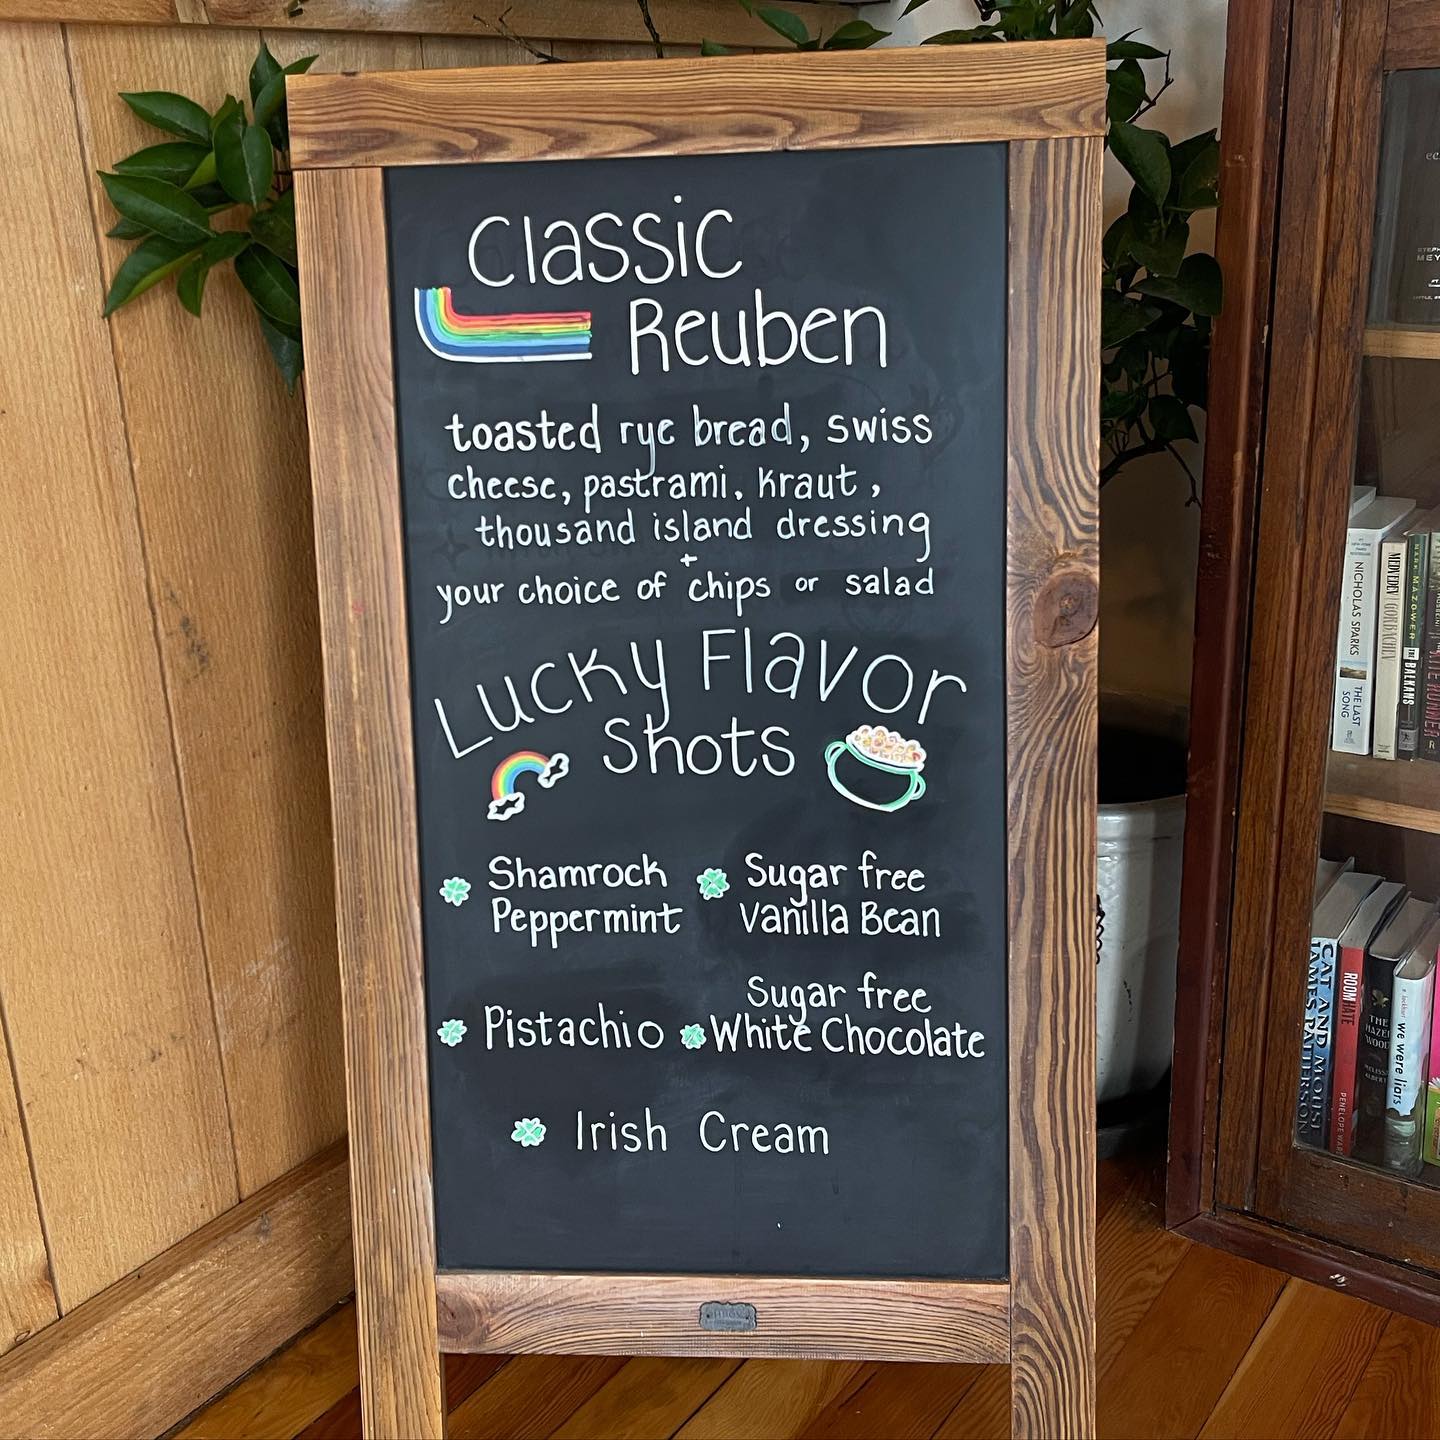 Classic
Reuben
toasted rye bread, swiss
cheese, pastrami, kraut,
thousand island dressing
+
your choice of chips or salad
Lucky Flavor
Shots
Shamrock
Peppermint
Sugar free
Vanilla Bean
Pistachio
Sugar free
White Chocolate
Irish Cream
NICHOLAS SPARKS
THE LAST
SONG
MARK MAZOWER
THE BALKANS
CAT AND MOUSE
JAMES PATTERSON
PENELOPE WARD
we were liars